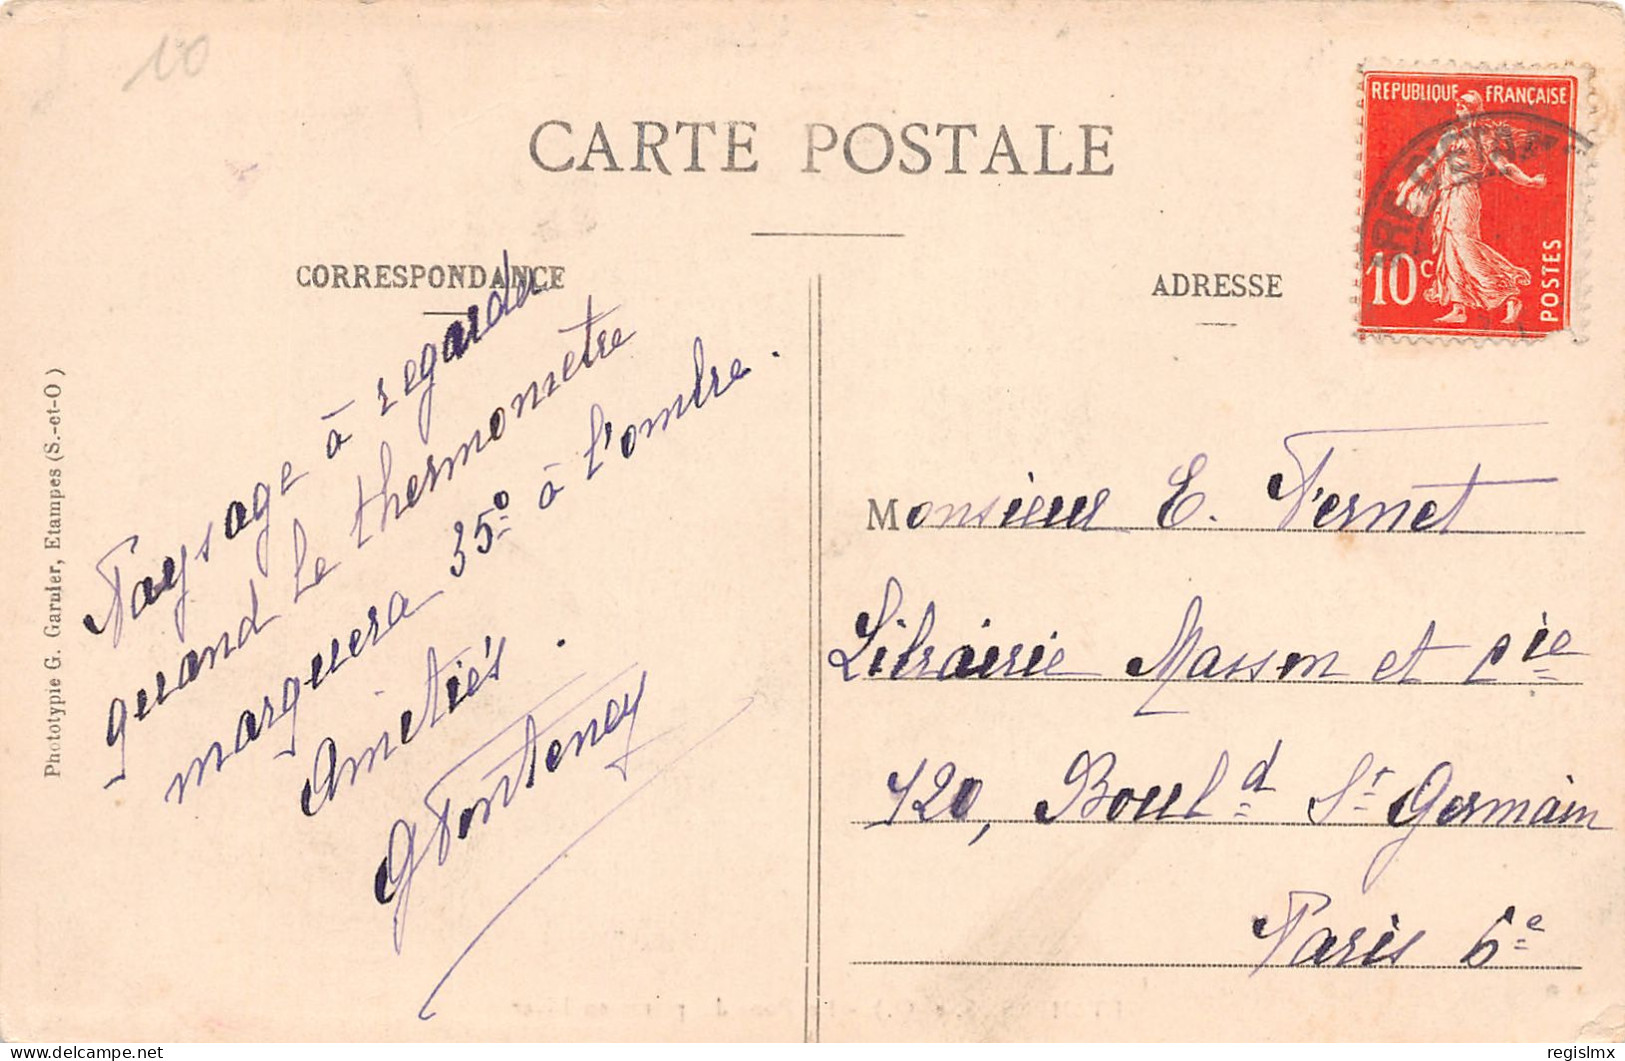 10
CARTE POSTALE
CORRESPONDANCE
ADRESSE
REPUBLIQUE FRANÇAISE
10c
POSTES
Phototypie G. Garnier, Etampes (S.-et-O)
Paysage à regarder
quand le thermomètre
marquera 35° à l'ombre.
Amitiés.
G Fonteney
Monsieur E. Fernet
Librairie Masson et Cie
120, Boul.d St Germain
Paris 6e
regislmx